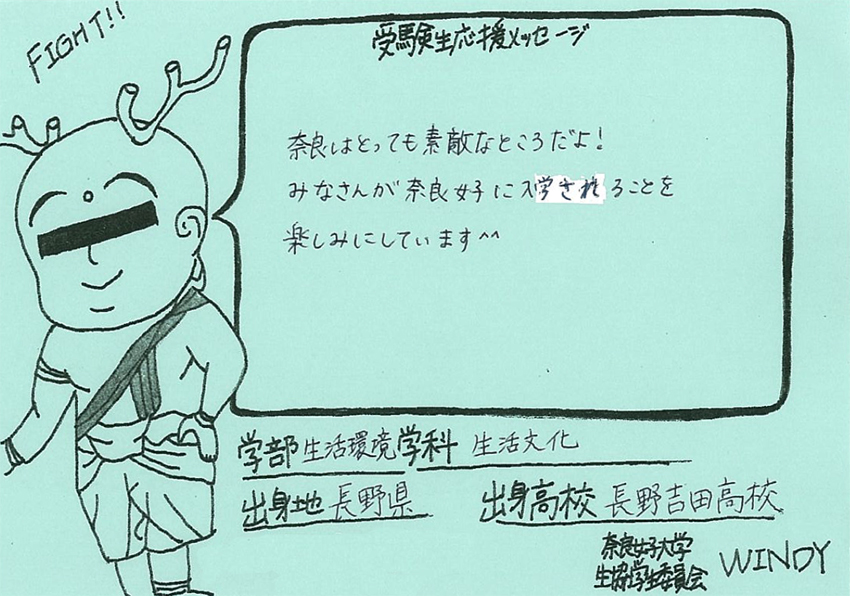 FIGHT!!
受験生応援メッセージ
奈良はとっても素敵なところだよ!
みなさんが奈良女子に入学されることを
楽しみにしています^^
学部 生活環境 学科 生活文化
出身地 長野県 出身高校 長野吉田高校
奈良女子大学
生協学生委員会 WINDY